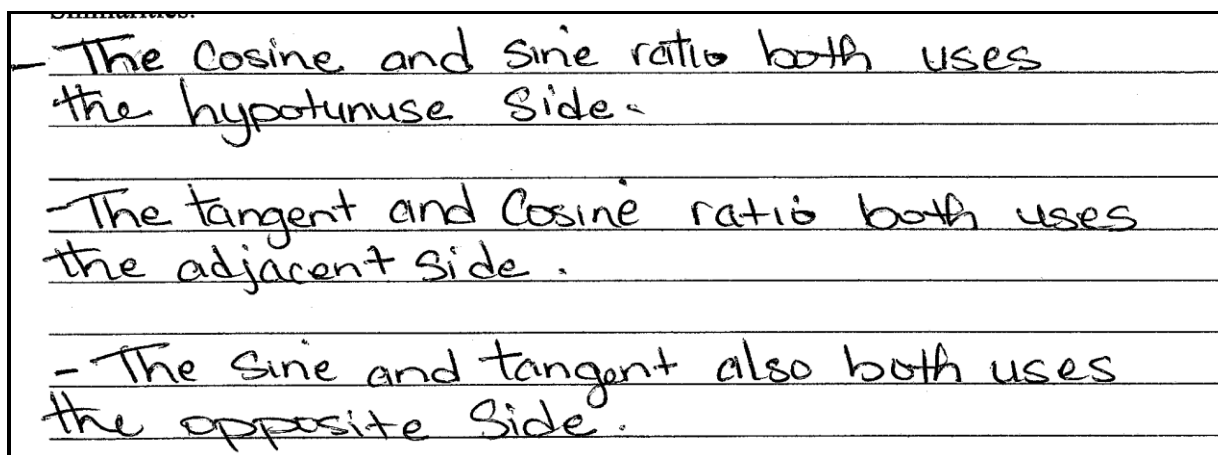 Similarities:
- The Cosine and Sine ratio both uses
the hypotunuse Side.
- The tangent and Cosine ratio both uses
the adjacent side.
- The Sine and tangent also both uses
the opposite Side.